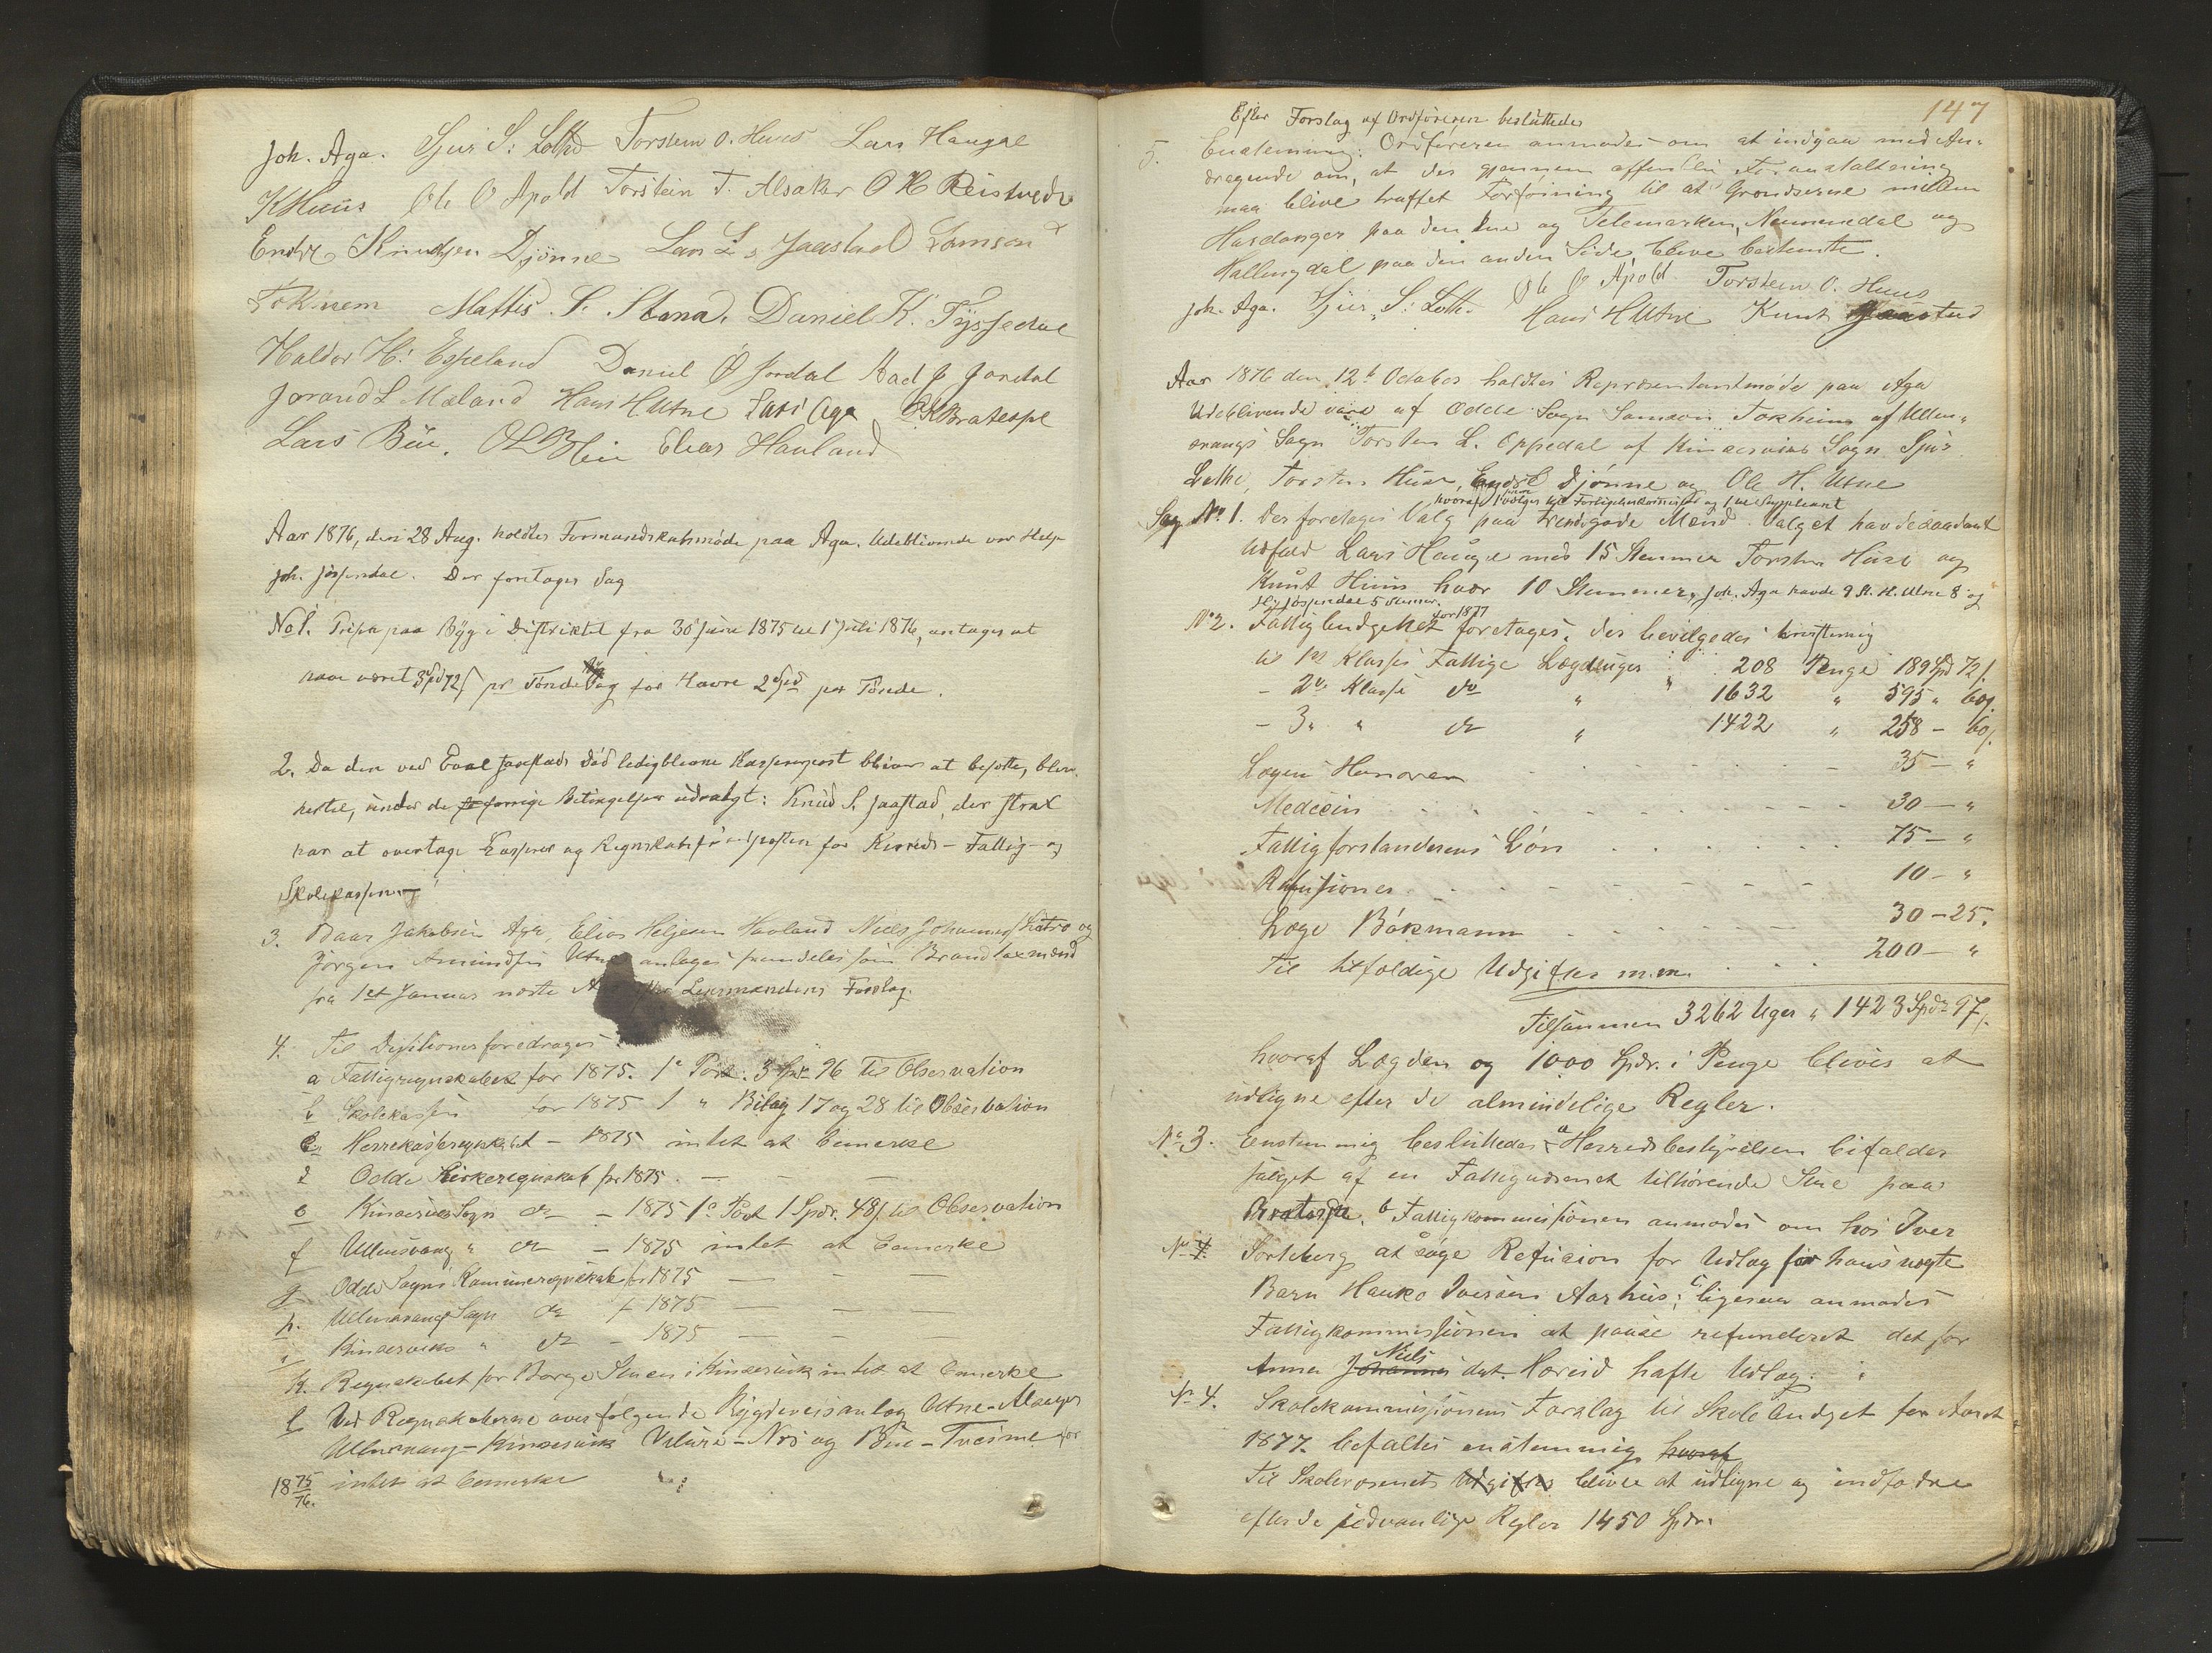 Joh. Aga. Sjur S. Lothe Torstein O. Huus Lars Haugse
K Huus Ole O Apold Torstein T. Alsaker O H Reisæter
Endre Knudsen Djønne Lars L. Jaastad Samson
Tokheim Mattis S. Stana. Daniel K. Tyssedal
Haldor H. Espeland Daniel O Jordal Aad J Jordal
Jorand L Mæland Hans H Utne Lars Aga K Bratespe
Lars Büe. O L Blie Elias Hauland
Aar 1876, den 28 Aug. holdtes Formandskabsmøde paa Aga. Udeblivende var Helje
Joh. Jøssendal. Der foretages Sag
No 1. Prisen paa Byg i Distriktet fra 30 Juni 1875 til 1 Juli 1876, antages at
have været 3 Spd 72 s pr Tønde og for Havre 2 Spd pr Tønde.
2. Da den ved Jaastads Død ledigblevne Kasserer post bliver at besætte, blev
hertil, under de forrige Betingelser udvalgt: Knud S. Jaastad, der strax
har at overtage Kasserer og Regnskabsførerposten for Herreds- Fattig- og
Skolekassen.
3. Baar Jakobsen Aga, Elias Heljesen Hauland Niels Johannes og
Jørgen Amundsen Utne antages fremdeles som Brandtaxmænd
fra 1ste Januar næste Lensmandens Forslag.
4. Til Desisioner foredrages
a Fattigregnskabet for 1875. 1e Post. 3 Spd 96 Til Observation
b Skolekassen for 1875 1 " Bilag 17 og 28 til Observation
c Herrekasseregnskabet - 1875 intet at bemerke
d Odde Kirkeregnskab for 1875. — — —
e Kinserviks Sogn do - 1875 1e Post 1 Spdr. 48 s. til Observation
f Ullensvang " do - 1875 intet at bemerke
g Odde Sogns Kommuneregnskab for 1875 — — —
h. Ullensvangs Sogn do f 1875 — — —
i Kinserviks " do - 1875 — — —
k. Regnskabet for Borge Stuen i Kinservik intet at bemerke
l Ved Regnskaberne over følgende Bygdeveisanlæg Utne-Alsager
Ullensvang-Kinservik Velure-Nes og Büe-Tveisme for
18 75/76. intet at bemerke

147
Efter Forslag af Ordføreren besluttedes
5. Enstemmig: Ordføreren anmodes om at indgaa med An-
dragende om, at der gjennem offentlig Foranstaltning
maa blive truffet Forføining til at Grændserne mellem
Hardanger paa den ene og Telemarken, Nummedal og
Hallingdal paa den anden Side, blive bestemte.
Joh. Aga. Sjur S. Lothe Ole O Apold. Torstein O. Huus
Hans H Utne Knut Jaastad
Aar 1876 den 12te October holdtes Repræsentantmøde paa Aga
Udeblivende vare af Odde Sogn Samson Tokheim af Ullens-
vangs Sogn Torsten L. Oppedal af Kinserviks Sogn Sjur
Lothe, Torsten Huse, Endre Djønne og Ole H. Utne
hvoraf 1 vælges til Forligelseskommissær og 1 til Suppleant
Sag No 1. Der foretages Valg paa trendegode Mænd. Valget havde saadant
Udfald Lars Hauge med 15 Stemmer Torsten Huse og
Knut Huus hver 10 Stemmer, Joh. Aga havde 9 St. H. Utne 8 og
H. Jøssendal 5 Stemmer.
for 1877
No 2. Fattigbudgettet foretages. Der bevilgedes enstemig
til 1ste Klasses Fattige Lægdeuger 208 Penge 189 Spd 72 s.
- 2de Klasse do " 1632 " 595 " 60 s.
- 3. " do " 1422 " 258 - 60 s.
Lægens Honorar 35 — "
Medecin 30 — "
Fattigforstanderens Løn 75 — "
Refusioner 10 — "
Læge Bökmann 30 — 25.
Til tilfældige Udgifter m.m. 200 — "
Tilsammen 3262 Uger " 1423 Spdr 97 s.
hvoraf Lægden og 1000 Spdr. i Penge blives at
udligne efter de almindelige Regler.
No 3. Enstemmig besluttedes a Herredsbestyrelsen bifalder
salget af en Fattigvæsenet tilhørende Stue paa
Bratespe. b Fattigkommissionen anmodes om hos Iver
No 4. at søge Refusion for Udlæg for hans uægte
Barn Hauko Iversen Aarhus; c ligesaa anmodes
Fattigkommissionen at paase refunderet det for
Anna Johannes Niels dat. Hæreid hafte Udlæg.
No 4. Skolekommissionens Forslag til Skolebudget for Aaret
1877. bifaltes enstemmig hvoraf
Til Skolevæsenets Udgifter blive at udligne og indfordre
efter de sædvanlige Regler 1450 Spdr.